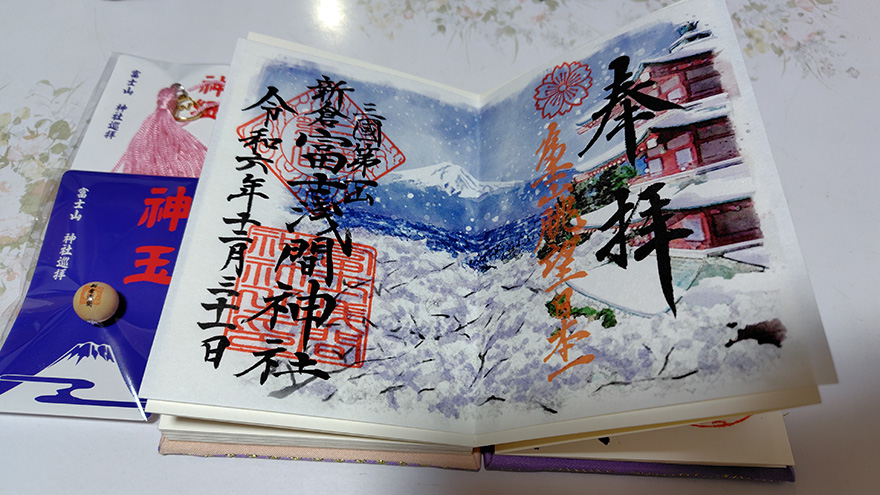 奉拝
富士山眺望日本一
三國第一山
新倉富士浅間神社
令和六年十二月三十一日
神玉
富士山 神社巡拝
神玉
富士山 神社巡拝